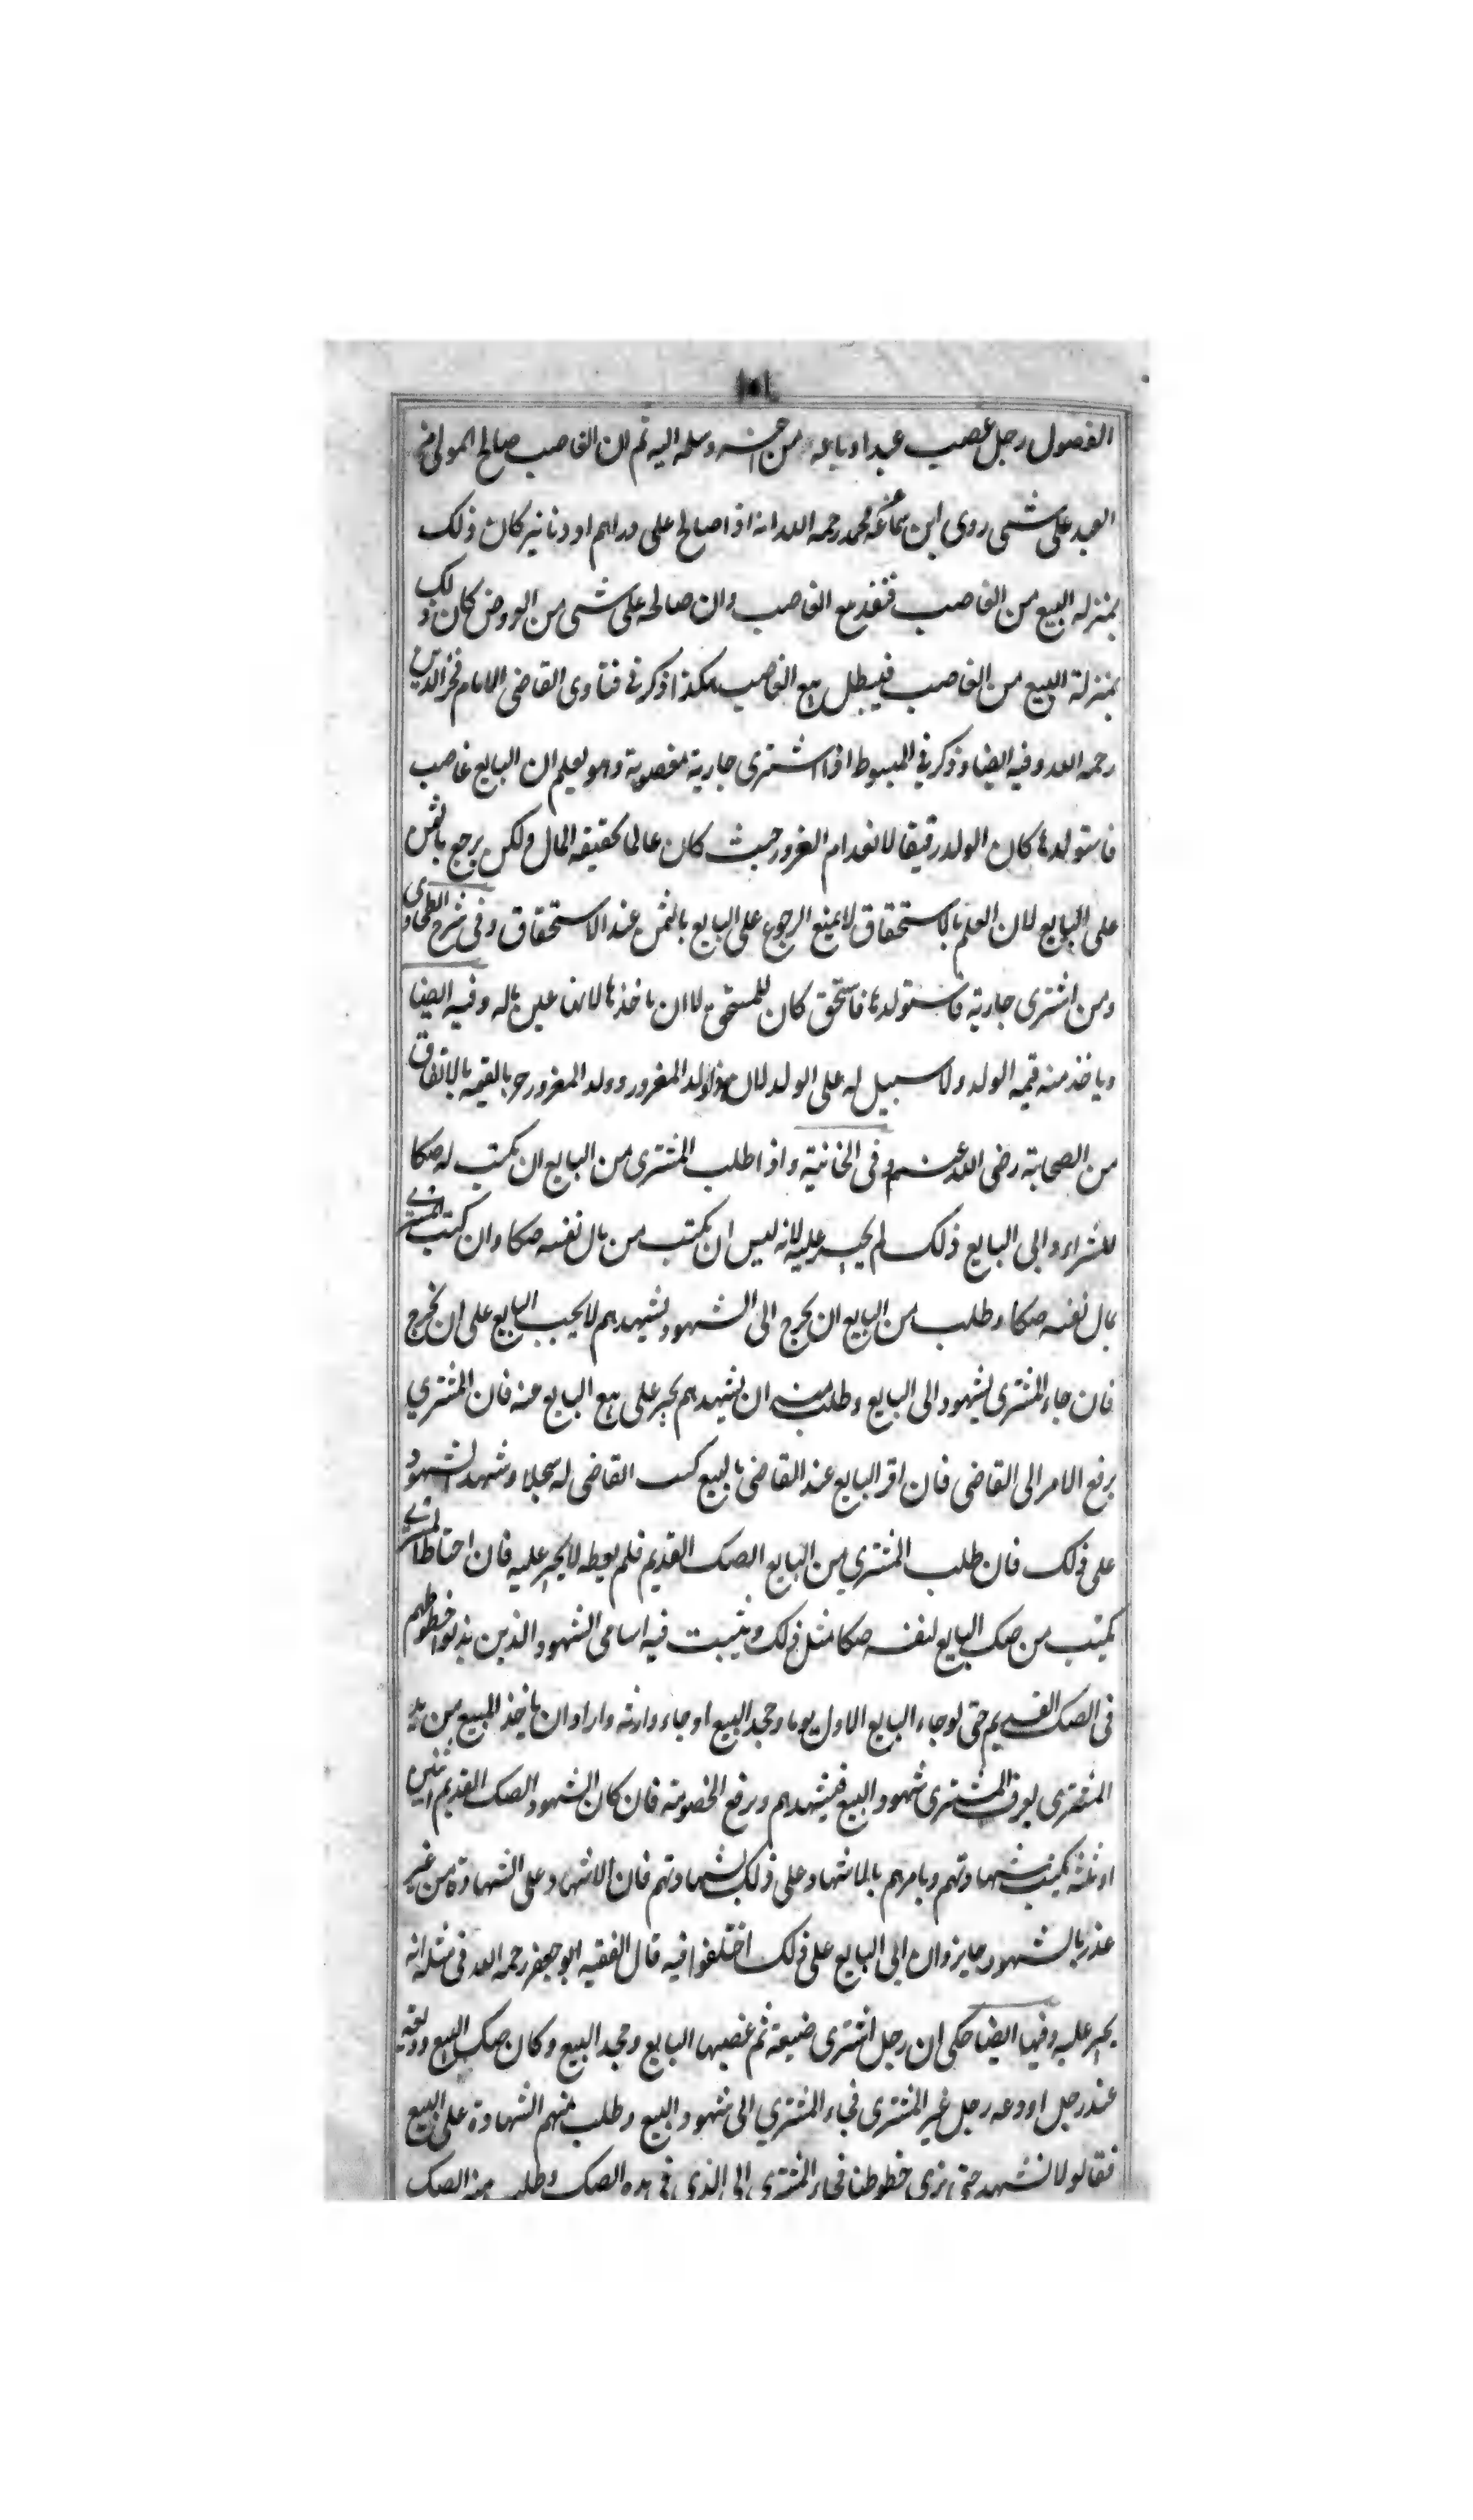 الفصول رجل غصب عبدا وباعه من اخر وسلمه اليه ثم ان الغاصب صالح المولى من
العبد على شى روى ابن سماعة عن محمد رحمه الله انه اذا صالح على دراهم او دنانير كان ذلك
بمنزله البيع من الغاصب فتنفذ بيع الغاصب وان صالحه على شى من العروض كان ذلك
بمنزلة البيع من الغاصب فيبطل بيع الغاصب هكذا ذكر في فتاوى القاضى الامام فخر الدين
رحمه الله وفيه ايضا وذكر في المبسوط اذا اشترى جارية مغصوبة وهو يعلم ان البايع غاصب
فاستولدها كان الولد رقيقا لانعدام الغرور حيث كان عالما بحقيقه الحال ولكن يرجع بالثمن
على البايع لان العلم بالاستحقاق لا يمنع الرجوع على البايع بالثمن عند الاستحقاق وفى شرح الطحاوى
ومن اشترى جارية فاستولدها فاستحق كان للمستحق ان ياخذها لانها عين ماله وفيه ايضا
وياخذ منه قيمه الولد ولا سبيل له على الولد لان هذا ولد المغرور وولد المغرور حر بالقيمه بالاتفاق
من الصحابة رضى الله عنهم وفى الخانية واذا طلب المشترى من البايع ان يكتب له صكا
للشراء وابى البايع ذلك لم يجبر عليه لانه ليس ان يكتب من مال نفسه صكا وان كتب المشترى
بمال نفسه صكا وطلب من البايع ان يخرج الى الشهود يشهدهم لا يجب البايع على ان يخرج
فان جاء المشترى بشهود الى البايع وطلب منه ان يشهدهم يجبر على بيع البايع منه فان المشتري
يرفع الامر الى القاضى فان اقر البايع عند القاضى بالبيع كتب القاضى له سجلا وشهد الشهود
على ذلك فان طلب المشترى من البايع الصك القديم فلم يعطه لا يجبر عليه فان احتاط المشترى
يكتب من صك البايع لنفسه صكا مثل ذلك ويثبت فيه اسامى الشهود الذين بذلوا خطوطهم
فى الصك القديم حتى لو جاء البايع الاول يوما وجحد البيع او جاء وارثه واراد ان ياخذ المبيع من يد
المشترى يعرف المشترى شهود البيع فيشهدهم ويرفع الخصومة فان كان الشهود الصك القديم اثنين
او ثلثة يكتب شهادتهم ويامرهم بالاشهاد على ذلك بشهادتهم فان الاشهاد على الشهادة من غير
عذر بالشهود جايز وان ابى البايع على ذلك اختلفوا فيه قال الفقيه ابو جعفر رحمه الله فى مثله انه
يجبر عليه وفيها ايضا حكى ان رجل اشترى ضيعة ثم غصبها البايع وجحد البيع وكان صك البيع وديعة
عند رجل اودعه رجل غير المشترى فجاء المشتري الى شهود البيع وطلب منهم الشهادة على البيع
فقالو لا نشهد حتى نرى خطوطنا فجاء المشترى الى الذى فى يده الصك وطلب منه الصك